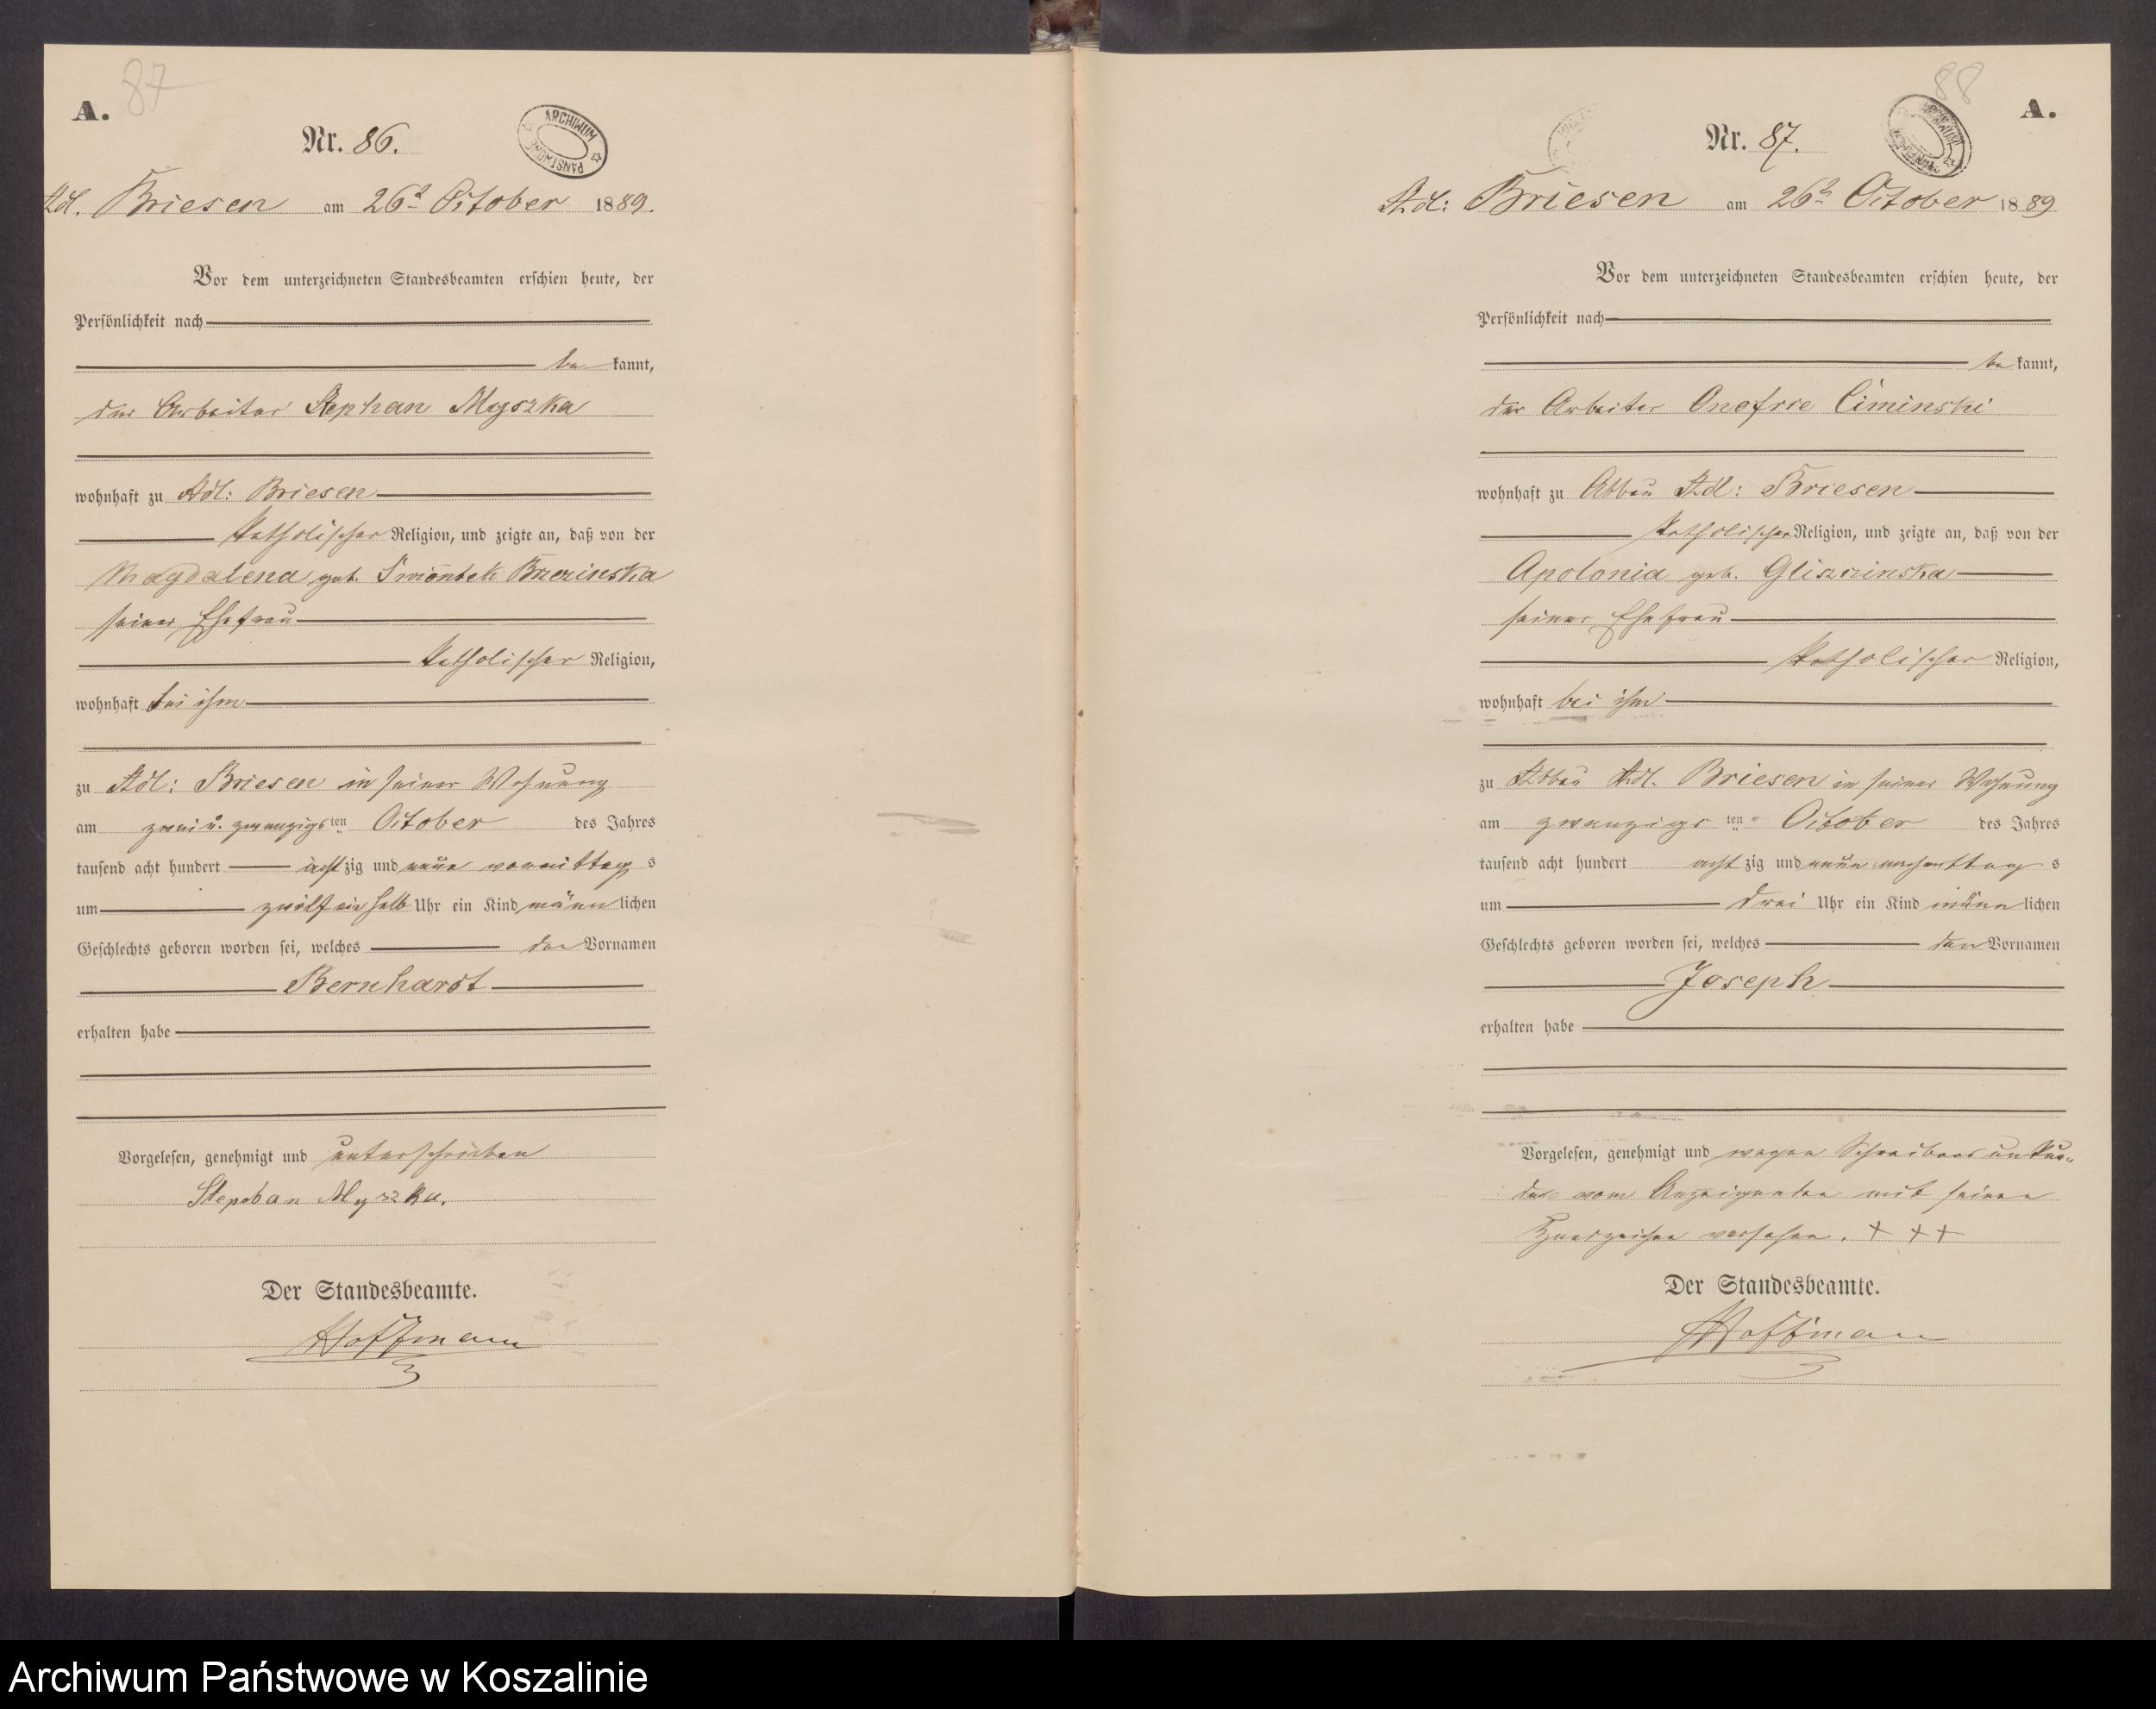 A. 87
ARCHIWUM PAŃSTWOWE
Nr. 86.
Adl. Briesen am 26t October 1889.
Vor dem unterzeichneten Standesbeamten erschien heute, der
Persönlichkeit nach
be kannt,
der Arbeiter Stephan Myszka
wohnhaft zu Adl: Briesen
katholischer Religion, und zeigte an, daß von der
Magdalena geb. Brzezinska
seiner Ehefrau
katholischer Religion,
wohnhaft bei ihm
zu Adl: Briesen in seiner Wohnung
am zwei u. zwanzigsten October des Jahres
tausend acht hundert achtzig und neun vormittags
um zwölf ein halb Uhr ein Kind männlichen
Geschlechts geboren worden sei, welches den Vornamen
Bernhardt
erhalten habe
Vorgelesen, genehmigt und unterschrieben
Stephan Myszka.
Der Standesbeamte.
Hoffmann
88 A.
Nr. 87.
Adl: Briesen am 26t October 1889
Vor dem unterzeichneten Standesbeamten erschien heute, der
Persönlichkeit nach
be kannt,
der Arbeiter Onofrie Ciminski
wohnhaft zu Abbau Adl: Briesen
katholischer Religion, und zeigte an, daß von der
Apolonia geb. Gliszczinska
seiner Ehefrau
katholischer Religion,
wohnhaft bei ihm
zu Abbau Adl. Briesen in seiner Wohnung
am zwanzigsten October des Jahres
tausend acht hundert achtzig und neun nachmittags
um drei Uhr ein Kind männlichen
Geschlechts geboren worden sei, welches den Vornamen
Joseph
erhalten habe
Vorgelesen, genehmigt und wegen Schreibens unkun-
de vom Anzeigenden mit seinen
Handzeichen versehen. + + +
Der Standesbeamte.
Hoffmann
Archiwum Państwowe w Koszalinie